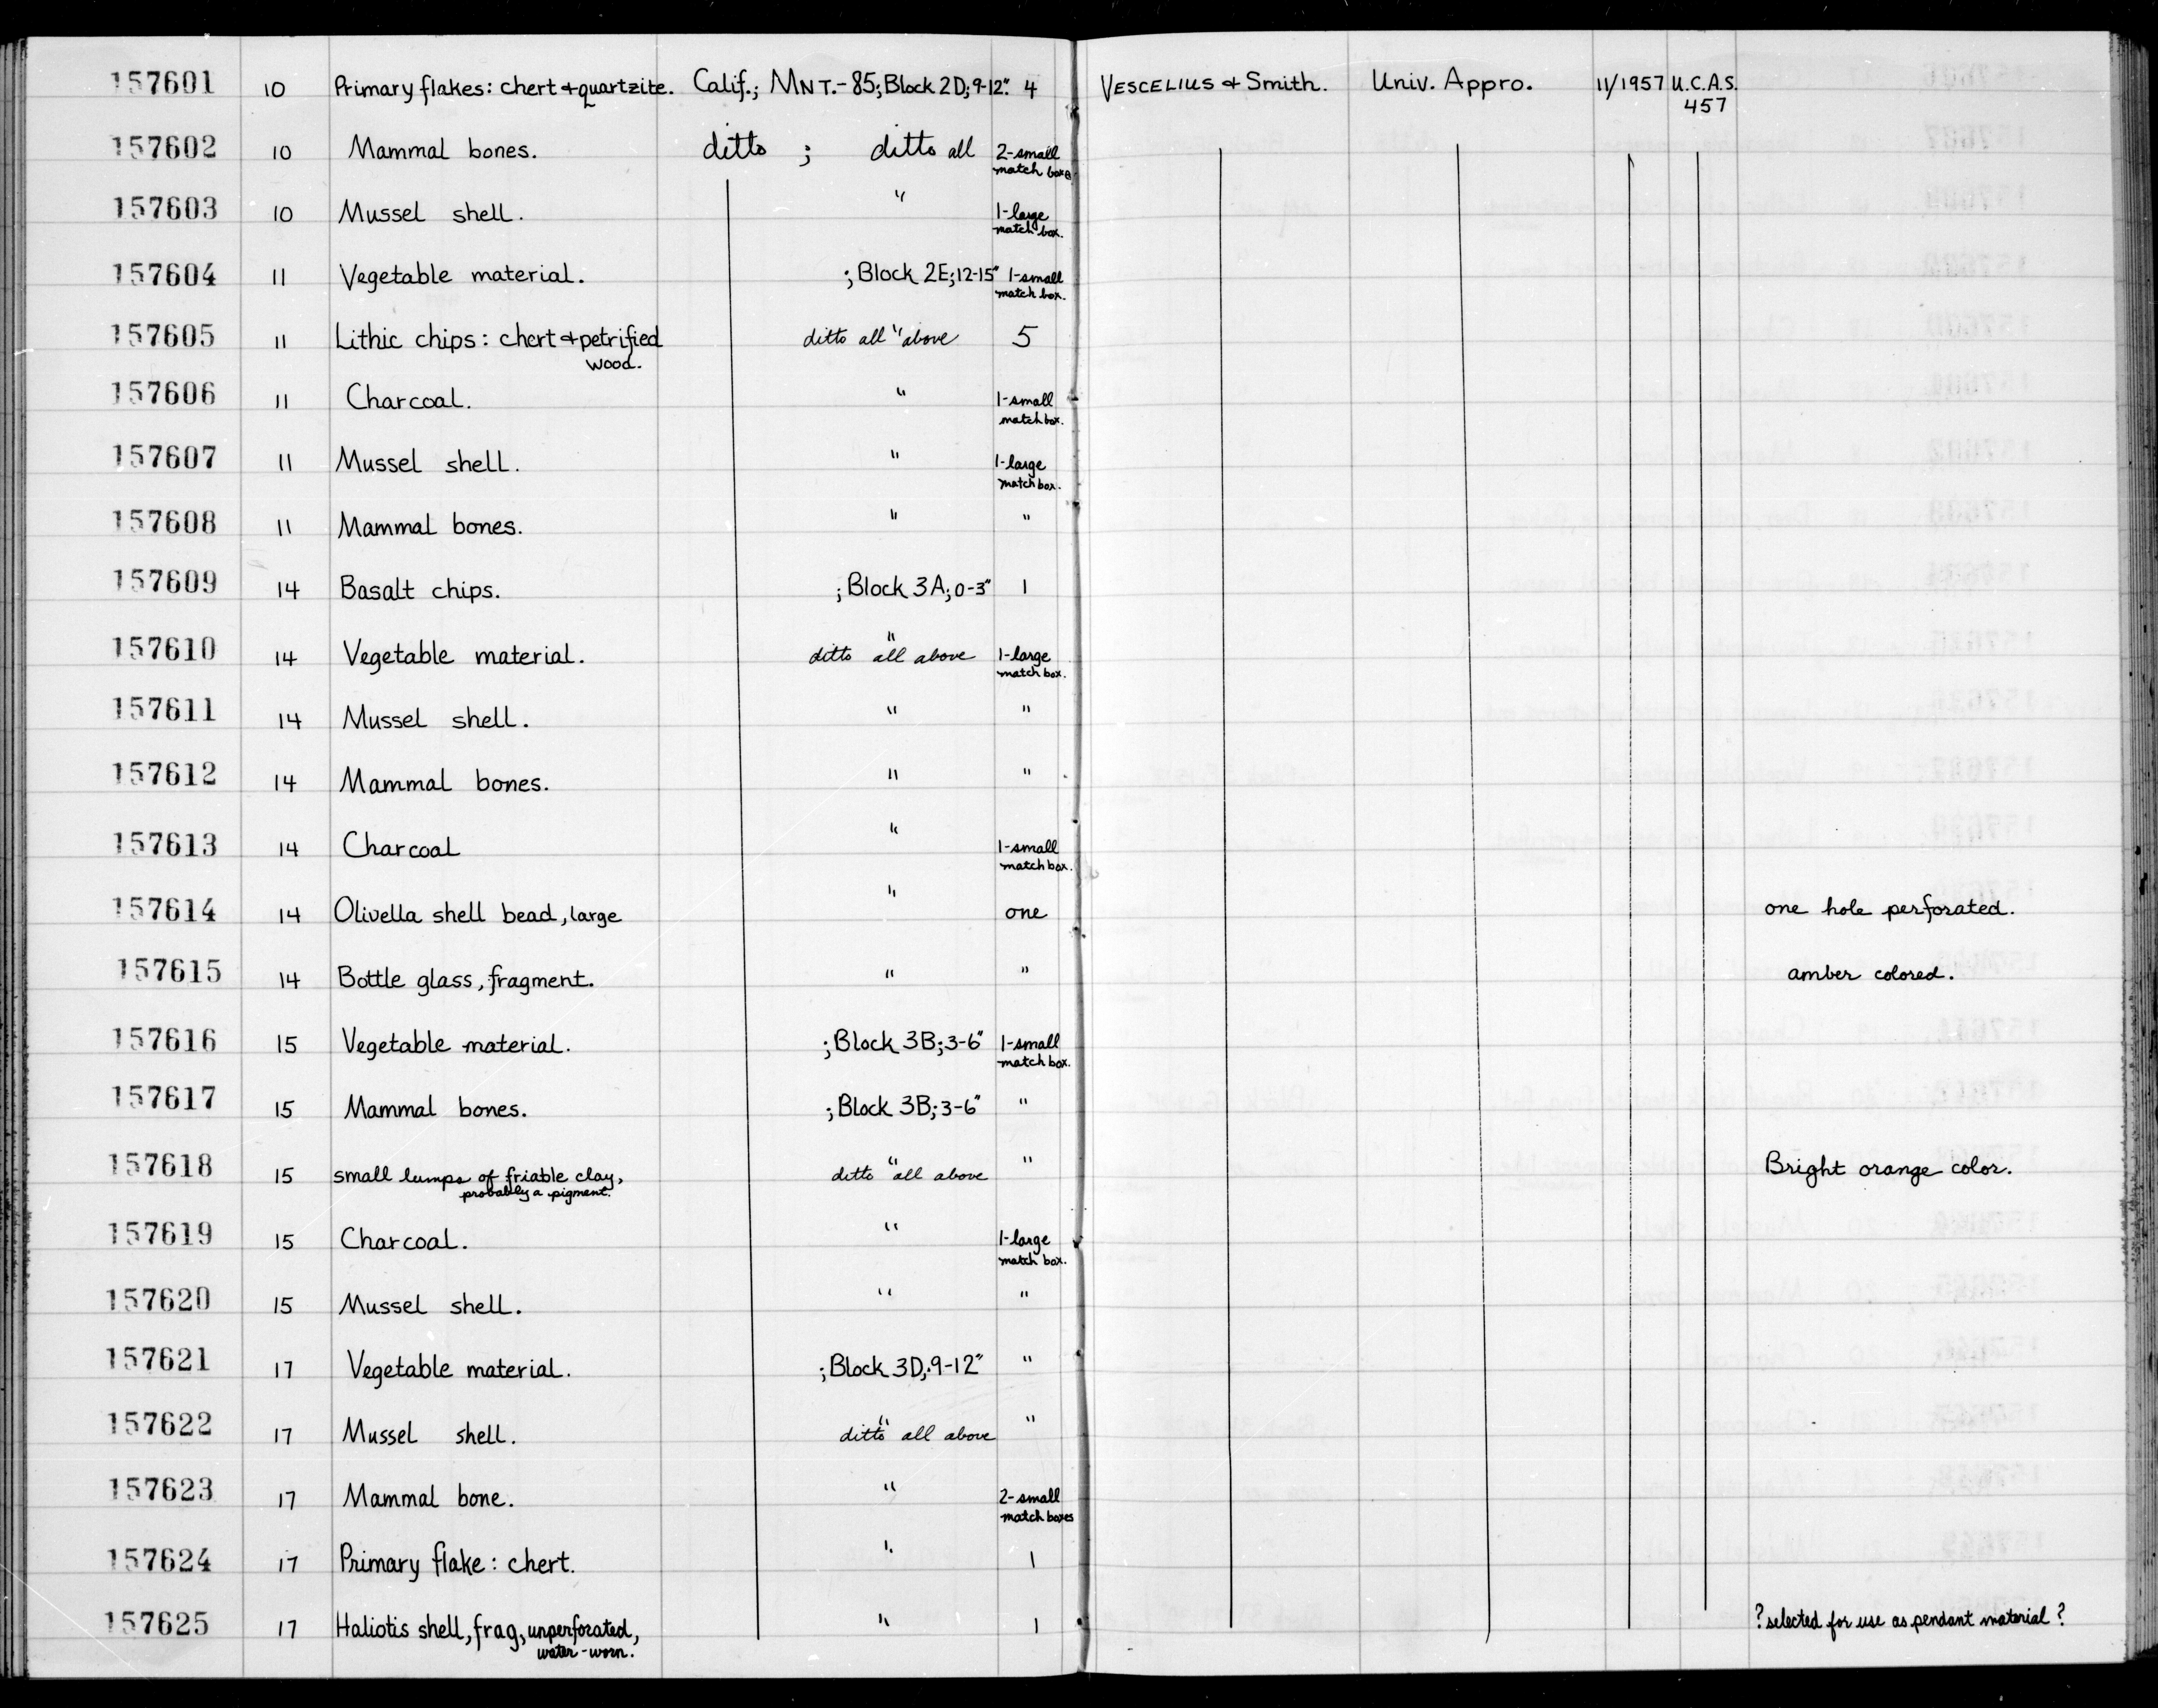 157601 10 Primary flakes: chert + quartzite. Calif.; MNT.-85; Block 2D; 9-12". 4 VESCELIUS + Smith. Univ. Appro. 11/1957 U.C.A.S.
457
157602 10 Mammal bones. ditto ; ditto all 2-small
match boxes
157603 10 Mussel shell. " 1-large
match box.
157604 11 Vegetable material. ; Block 2E; 12-15" 1-small
match box.
157605 11 Lithic chips: chert + petrified ditto all " above 5
wood.
157606 11 Charcoal. " 1-small
match box.
157607 11 Mussel shell. " 1-large
match box.
157608 11 Mammal bones. " "
157609 14 Basalt chips. ; Block 3A; 0-3" 1
157610 14 Vegetable material. ditto " all above 1-large
match box.
157611 14 Mussel shell. " "
157612 14 Mammal bones. " "
157613 14 Charcoal " 1-small
match box.
157614 14 Olivella shell bead, large " one one hole perforated.
157615 14 Bottle glass, fragment. " " amber colored.
157616 15 Vegetable material. ; Block 3B; 3-6" 1-small
match box.
157617 15 Mammal bones. ; Block 3B; 3-6" "
157618 15 small lumps of friable clay, ditto " all above " Bright orange color.
probably a pigment.
157619 15 Charcoal. " 1-large
match box.
157620 15 Mussel shell. " "
157621 17 Vegetable material. ; Block 3D; 9-12" "
157622 17 Mussel shell. ditto " all above "
157623 17 Mammal bone. " 2-small
match boxes
157624 17 Primary flake: chert. " 1
157625 17 Haliotis shell, frag, unperforated, " 1 ? selected for use as pendant material ?
water-worn.